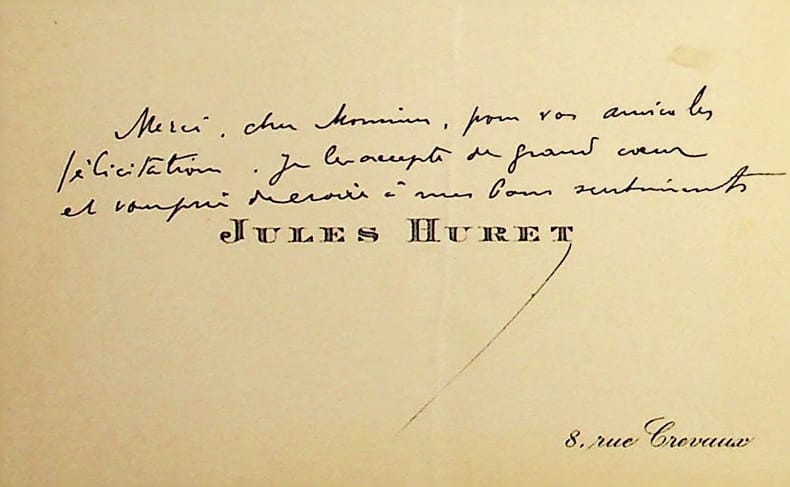 Merci, cher Monsieur, pour vos amicales
félicitations. Je les accepte de grand cœur
et vous prie de croire à mes bons sentiments
JULES HURET
8. rue Crevaux